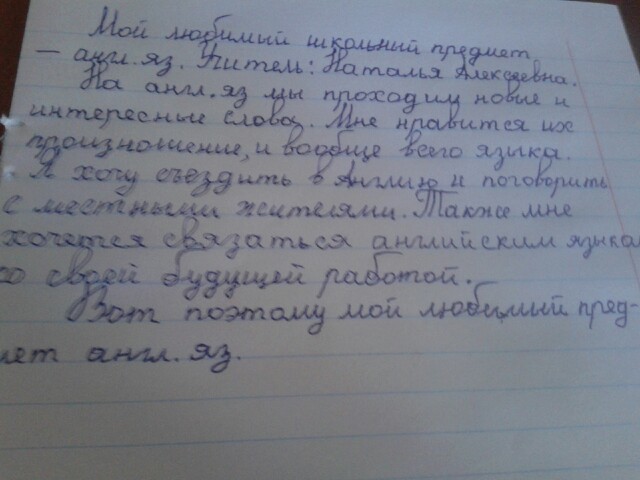 Мой любимый школьный предмет
— англ. яз. Учитель: Наталья Алексеевна.
На англ. яз мы проходим новые и
интересные слова. Мне нравится их
произношение, и вообще всего языка.
Я хочу съездить в Англию и поговорить
с местными жителями. Также мне
хочется связаться английским языком
со своей будущей работой.
Вот поэтому мой любимый пред-
мет англ. яз.